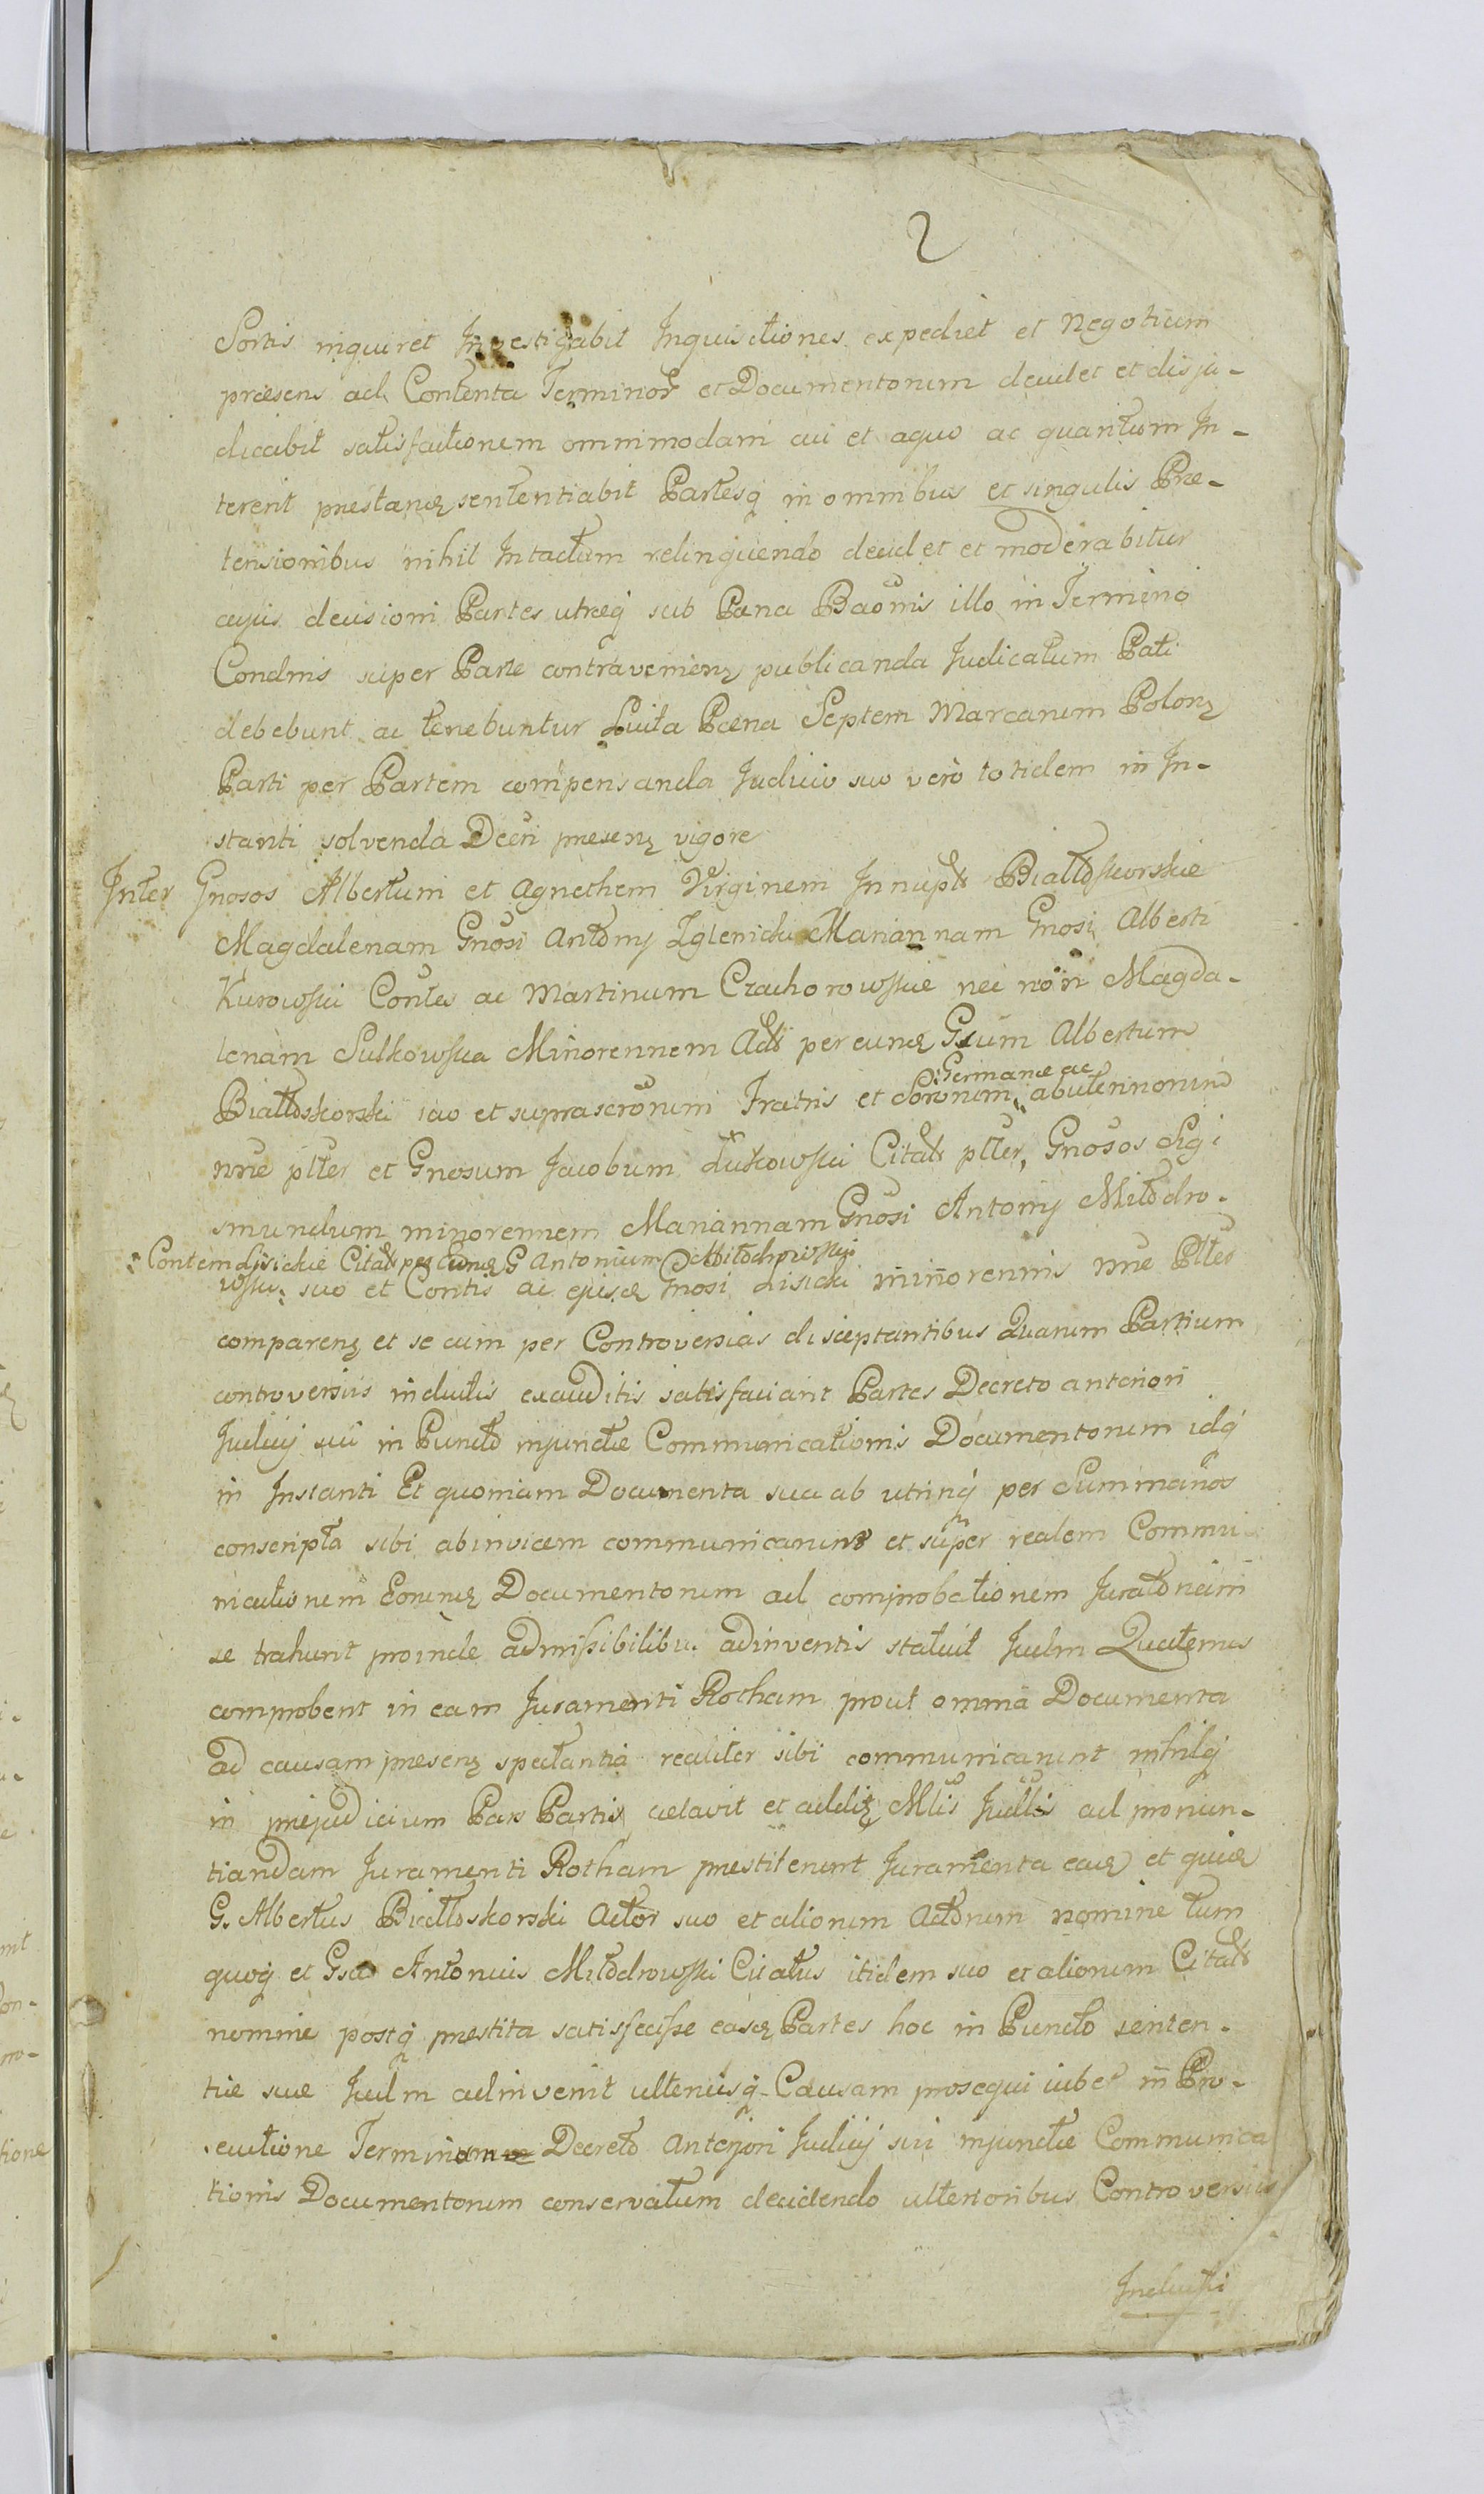 2
Sortis inquiret Investigabit Inquisitiones expediet et Negotium
præsens ad Contenta Terminor et Documentorum decidet et disju-
dicabit satisfactionem omnimodam cui et a quo ac quantum In-
tererit prestanɖ sententiabit Partesq in omnibus et singulis Præ-
tensionibus nihil Intactum relinquendo decidet et moderabitur
cujus decisioni Partes utræq sub Pæna Baonis illo in Termino
Condnis super Parte contravenienɀ publicanda Judicatum Pati
debebunt ac tenebuntur Luita Pœna Septem Marcarum Polonɀ
Parti per Partem compensanda Judicio suo vero totidem in In-
stanti solvenda Decri presenɀ vigore
Inter Gnosos Albertum et Agnethem Virginem Innupt Białłoskorskie
Magdalenam Gnosi Antonij Zglenicki Mariannam Gnosi Alberti
Kurowski Contes ac Martinum Czachorowskie nec non Magda-
lenam Sulkowska Minorennem Act per eunɖ Gsum Albertum
Białłoskorski suo et suprascrorum Fratris et Sororum abutennorum
Germanæ ac
nne pller et Gnosum Jacobum Lukowski Citat pller, Gnosos Sigi
smundum minorennem Mariannam Gnosi Antonij Miłodro-
Contem Lisickie Citat per Eunɖ G Antonium Miłodrowski
wski suo et Contis ac ejusɖ Gnosi Lisicki minorennis nne Pller
comparenɀ et se cum per Controversias disceptantibus Quarum Partium
controversiis inductis exauditis satisfaciant Partes Decreto anteriori
Judicij sui in Puncto injunctæ Communicationis Documentorum idq
in Instanti Et quoniam Documenta sua ab utrinq per Summarios
conscripta sibi abinvicem communicarunt et super realem Commu
nicationem Eorunɖ Documentorum ad comprobationem Juratoriam
se trahunt proinde admissibilibus adinventis statuit Judm Quatenus
comprobent in eam Juramenti Rotham prout omnia Documenta
ad causam presenɀ spectantia realiter sibi communicarunt nihilq
in præjudicium Pars Partis celavit et additɀ Mlis Judlis ad pronun-
tiandam Juramenti Rotham prestiterunt Juramenta eaɖ et quia
G. Albertus Białłoskorski Actor suo et aliorum Actorum nomine tum
quoq et Gsus Antonius Miłodrowski Citatus itidem suo et aliorum Citat
nomine postq prestita satisfecisse easɖ Partes hoc in Puncto senten-
tiæ suæ Judm adinvenit ulteriusq Causam prosequi iubet in Pro-
secutione Termin Decreto Anterjori Judicij sui injunctæ Communica
tionis Documentorum conservatum decidendo ulterioribus Controversiis
Inductis